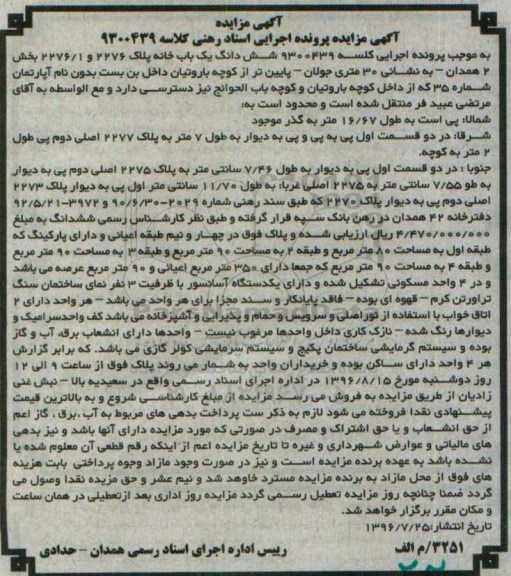 آگهی مزایده
آگهی مزایده پرونده اجرایی اسناد رهنی کلاسه ۹۳۰۰۴۳۹
به موجب پرونده اجرایی کلسه ۹۳۰۰۴۳۹ شش دانگ یک باب خانه پلاک ۲۲۷۶ و ۲۲۷۶/۱ بخش
۲ همدان – به نشانی ۳۰ متری جولان – پایین تر از کوچه باروتیان داخل بن بست بدون نام آپارتمان
شماره ۳۵ که از داخل کوچه باروتیان و کوچه باب الحوائج نیز دسترسی دارد و مع الواسطه به آقای
مرتضی عبید فر منتقل شده است و محدود است به:
شمالا: پی است به طول ۱۶/۶۷ متر به گذر موجود
شرقا: در دو قسمت اول پی به پی و پی به دیوار به طول ۷ متر به پلاک ۲۲۷۷ اصلی دوم پی طول
۲ متر به کوچه.
جنوبا : در دو قسمت اول پی به دیوار به طول ۷/۴۶ سانتی متر به پلاک ۲۲۷۵ اصلی دوم پی به دیوار
به طو ۷/۵۵ سانتی متر به ۲۲۷۵ اصلی غربا: به طول ۱۱/۷۰ سانتی متر اول پی به دیوار پلاک ۲۲۷۳
اصلی دوم پی به دیوار پلاک ۲۲۷۰ که طبق سند رهنی شماره ۲۰۲۹-۹۰/۶/۳۰ و ۳۹۷۲-۹۲/۵/۲۱
دفترخانه ۴۲ همدان در رهن بانک سپه قرار گرفته و طبق نظر کارشناس رسمی ششدانگ به مبلغ
۴/۴۷۰/۰۰۰/۰۰۰ ریال ارزیابی شده و پلاک فوق در چهار و نیم طبقه اعیانی و دارای پارکینگ که
طبقه اول به مساحت ۸۰ متر مربع و طبقه ۲ به مساحت ۹۰ متر مربع و طبقه ۳ به مساحت ۹۰ متر مربع
و طبقه ۴ به مساحت ۹۰ متر مربع که جمعا دارای ۳۵۰ متر مربع اعیانی و ۹۰ متر مربع عرصه می باشد
و در ۴ واحد مسکونی تشکیل شده و دارای یکدستگاه آسانسور با ظرفیت ۳ نفر نمای ساختمان سنگ
تراورتن کرم – قهوه ای بوده – فاقد پایانکار و سند مجزا برای هر واحد می باشد – هر واحد دارای ۲
اتاق خواب با استفاده از نور اصلی و سرویس وحمام و پذیرایی و آشپزخانه می باشد کف واحدسرامیک و
دیوارها رنگ شده – نازک کاری داخل واحدها مرغوب نیست – واحدها دارای انشعاب برق، آب و گاز
بوده و سیستم گرمایشی ساختمان پکیج و سیستم سرمایشی کولر گازی می باشد. که برابر گزارش
هر ۴ واحد دارای ساکن بوده و خریداران واحد به شمار می روند پلاک فوق از ساعت ۹ الی ۱۲
روز دوشنبه مورخ ۱۳۹۶/۸/۱۵ در اداره اجرای اسناد رسمی واقع در سعیدیه بالا – نبش غنی
زادیان از طریق مزایده به فروش می رسد مزایده از مبلغ کارشناسی شروع و به بالاترین قیمت
پیشنهادی نقدا فروخته می شود لازم به ذکر ست پرداخت بدهی های مربوط به آب ،برق ، گاز اعم
از حق انشعاب و یا حق اشتراک و مصرف در صورتی که مورد مزایده دارای آنها باشد و نیز بدهی
های مالیاتی و عوارض شهرداری و غیره تا تاریخ مزایده اعم از اینکه رقم قطعی آن معلوم شده یا
نشده باشد به عهده برنده مزایده است و نیز در صورت وجود مازاد وجوه پرداختی بابت هزینه
های فوق از محل مازاد به برنده مزایده مسترد خاوهد شد و نیم عشر و حق مزیده نقدا وصول می
گردد ضمنا چنانچه روز مزایده تعطیل رسمی گردد مزایده روز اداری بعد ازتعطیلی در همان ساعت
و مکان مقرر برگزار خواهد شد.
تاریخ انتشار:۱۳۹۶/۷/۲۵
۳۲۵۱/م الف
رییس اداره اجرای اسناد رسمی همدان – حدادی